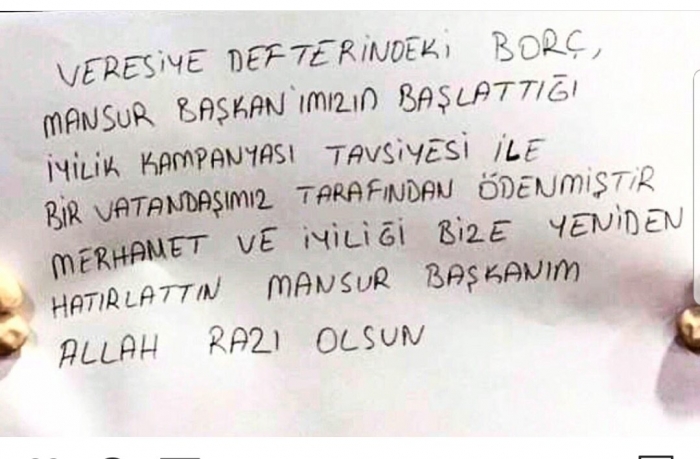 VERESİYE DEFTERİNDEKİ BORÇ,
MANSUR BAŞKAN'IMIZIN BAŞLATTIĞI
İYİLİK KAMPANYASI TAVSİYESİ İLE
BİR VATANDAŞIMIZ TARAFINDAN ÖDENMİŞTİR
MERHAMET VE İYİLİĞİ BİZE YENİDEN
HATIRLATTIN MANSUR BAŞKANIM
ALLAH RAZI OLSUN